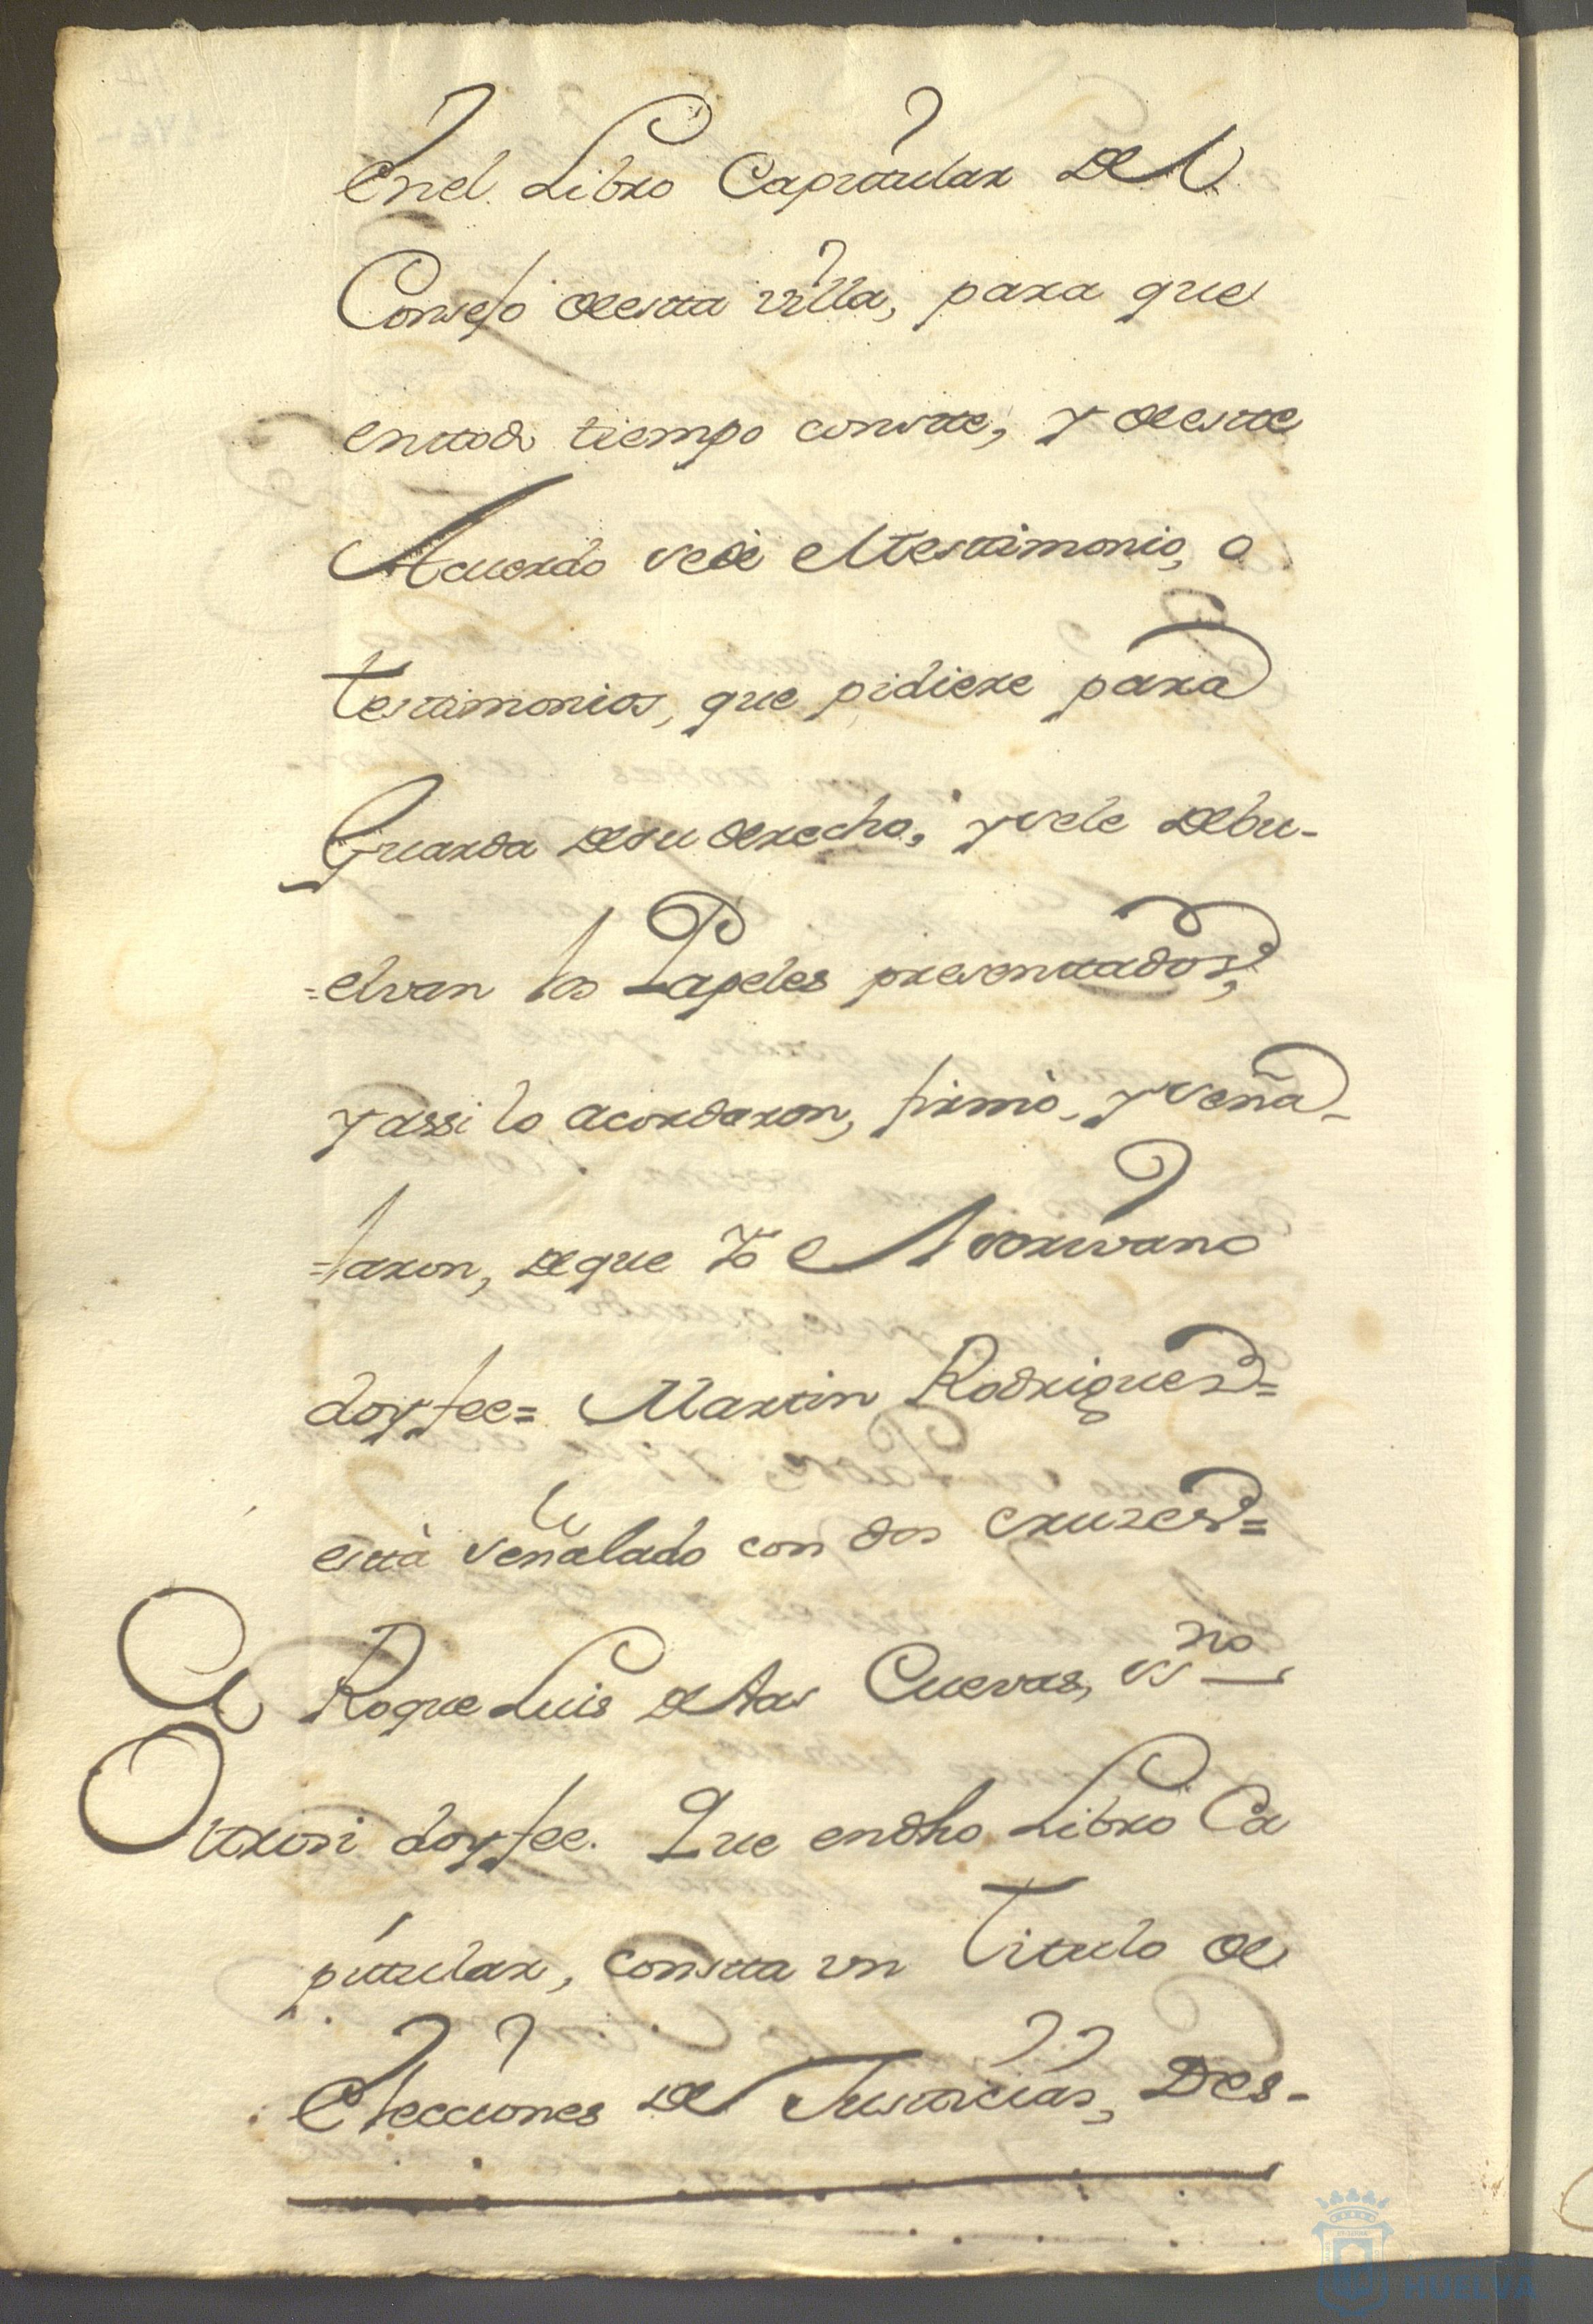 Enel Libro Capitular del
Consejo desta villa, para que
enttodo tiempo conste, y deeste
Acuerdo sedè el testimonio, o
testimonios, que pidiere para
Guarda desu derecho, y sele debu-
=elvan los Papeles presenttados,
y assi lo acordaron, firmò, y señã-
=laron, deque Yo el escrivano
doy fee= Martin Rodriguez=
està señalado con dos cruzes=
Roque Luis delas Cuevas, es.no
Otrosi doy fee. Que endho Libro Ca
pitular, consta un Titulo de
Elecciones de Justicias, Des-
HUELVA